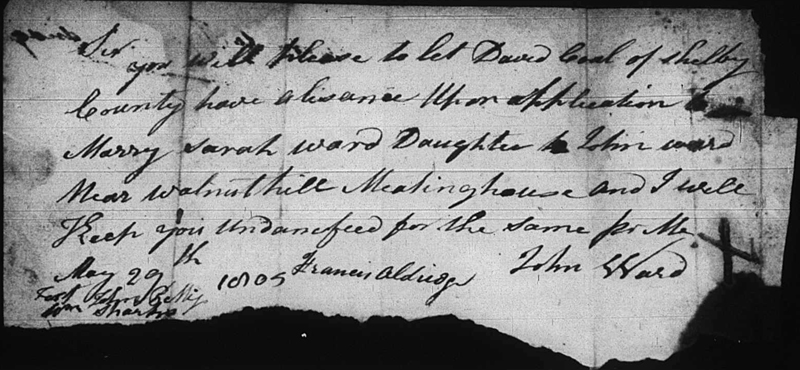 Sir
you will please to let David Coal of Shelby
County have a lisance Upon application to
Marry Sarah ward Daughter to John ward
Near walnut hill Meatinghouse and I will
Keep you undamefeed for the same pr Me
May 29th 1805 Francis Aldridge John Ward
Test John